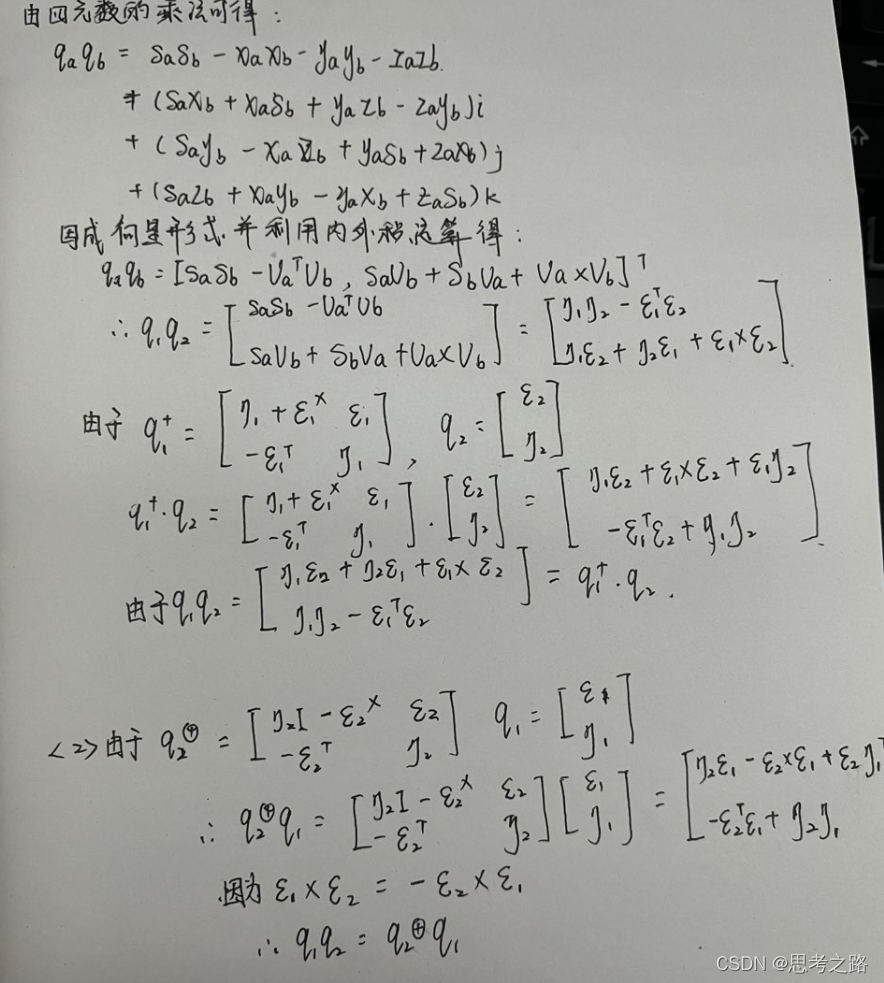 由四元数的乘法可得：
qₐq_b = SₐS_b - xₐx_b - yₐy_b - zₐz_b.
+ (Sₐx_b + xₐS_b + yₐz_b - zₐy_b)i
+ (Sₐy_b - xₐz_b + yₐS_b + zₐx_b)j
+ (Sₐz_b + xₐy_b - yₐx_b + zₐS_b)k
写成向量形式.并利用内外积运算得：
qₐq_b = [SₐS_b - VₐᵀV_b , SₐV_b + S_bVₐ + Vₐ×V_b]ᵀ
∴ q₁q₂ = [SₐS_b - VₐᵀV_b ; SₐV_b + S_bVₐ + Vₐ×V_b] = [η₁η₂ - ε₁ᵀε₂ ; η₁ε₂ + η₂ε₁ + ε₁×ε₂].
由于 q₁⁺ = [η₁ + ε₁^× ε₁ ; -ε₁ᵀ η₁], q₂ = [ε₂ ; η₂]
q₁⁺·q₂ = [η₁ + ε₁^× ε₁ ; -ε₁ᵀ η₁]·[ε₂ ; η₂] = [η₁ε₂ + ε₁×ε₂ + ε₁η₂ ; -ε₁ᵀε₂ + η₁η₂].
由于q₁q₂ = [η₁ε₂ + η₂ε₁ + ε₁×ε₂ ; η₁η₂ - ε₁ᵀε₂] = q₁⁺·q₂.
<2>由于 q₂^⊕ = [η₂I - ε₂^× ε₂ ; -ε₂ᵀ η₂] q₁ = [ε₁ ; η₁]
∴ q₂^⊕q₁ = [η₂I - ε₂^× ε₂ ; -ε₂ᵀ η₂][ε₁ ; η₁] = [η₂ε₁ - ε₂×ε₁ + ε₂η₁ ; -ε₂ᵀε₁ + η₂η₁
因为 ε₁×ε₂ = -ε₂×ε₁
∴ q₁q₂ = q₂^⊕q₁
CSDN @思考之路